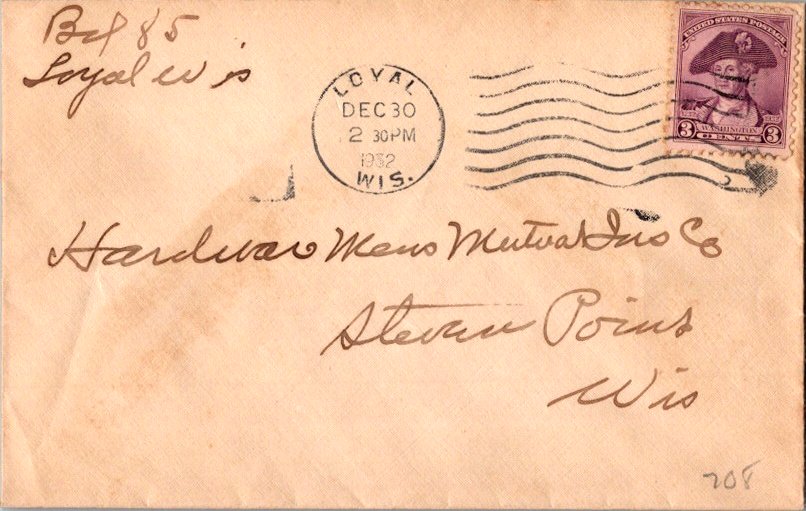 Box 85
Loyal Wis
LOYAL
DEC 30
2 30PM
1932
WIS.
UNITED STATES POSTAGE
3 WASHINGTON 3
CENTS
Hardware Mens Mutual Ins Co
Steven Point
Wis
208